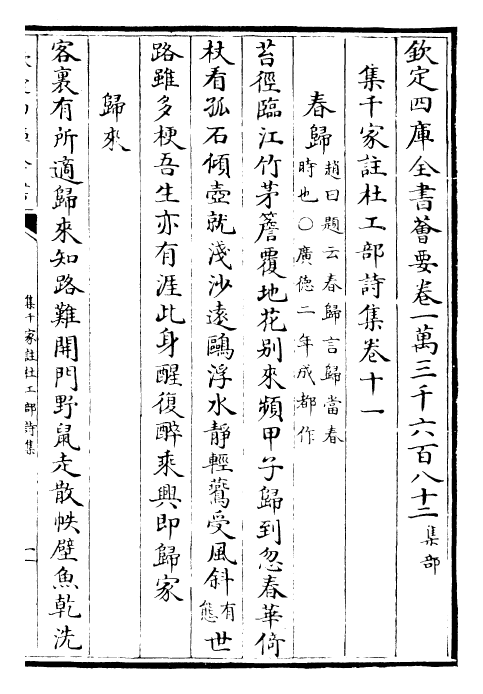 欽定四庫全書薈要卷一萬三千六百八十二集部
集千家註杜工部詩集卷十一
春歸趙曰題云春歸言歸當春時也○廣德二年成都作
苔徑臨江竹茅簷覆地花别來頻甲子歸到忽春華倚
杖看孤石傾壺就淺沙逺鷗浮水靜輕鷰受風斜有態世
路雖多梗吾生亦有涯此身醒復醉乘興即歸家
歸來
客裏有所適歸來知路難開門野鼠走散帙壁魚乾洗
集千家註杜工部詩集
一